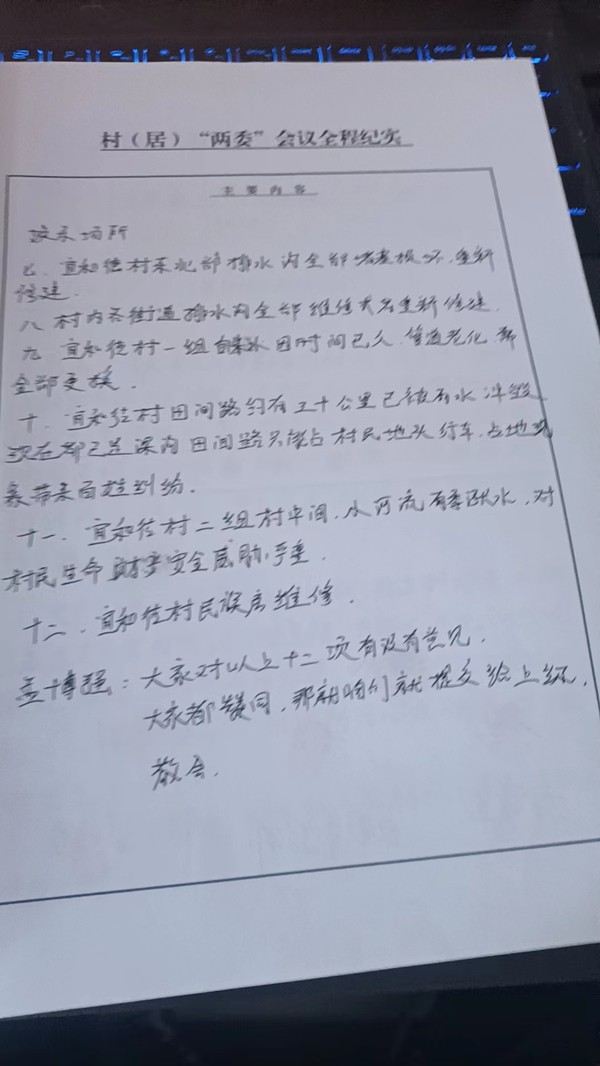 村（居）“两委”会议全程纪实
主要内容
娱乐场所
七、宜和德村东北部排水沟全部堵塞损坏，重新
修建.
八、村内各街道排水沟全部维修或者重新修建.
九、宜和德村一组自来水因时间已久，管道老化，都
全部更换.
十、宜和德村田间路约有五十公里已被雨水冲毁
现在都已是深沟 田间路只能占村民地头行车，占地
带来百姓纠纷.
十一、宜和德村二组村中间，小河流雨季跃水，对
村民生命财产安全威胁严重.
十二、宜和德村民族房维修.
孟博强：大家对以上十二项有没有意见.
大家都赞同，那咱们就提交给上级.
散会.